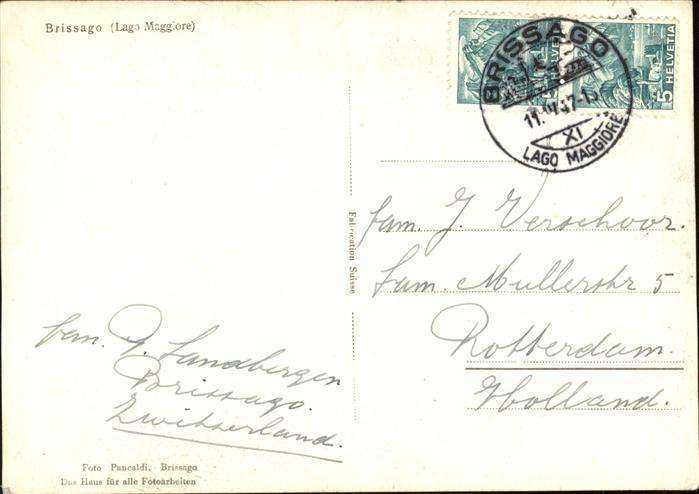 Brissago (Lago Maggiore)
5 HELVETIA
BRISSAGO
XI
LAGO MAGGIORE
Fabrication Suisse
fam. J. Verschoor.
Mullerstr 5
Rotterdam.
Holland.
fam. J. Sandbergen
Brissago.
Zwitserland.
Foto Pancaldi, Brissago
Das Haus für alle Fotoarbeiten